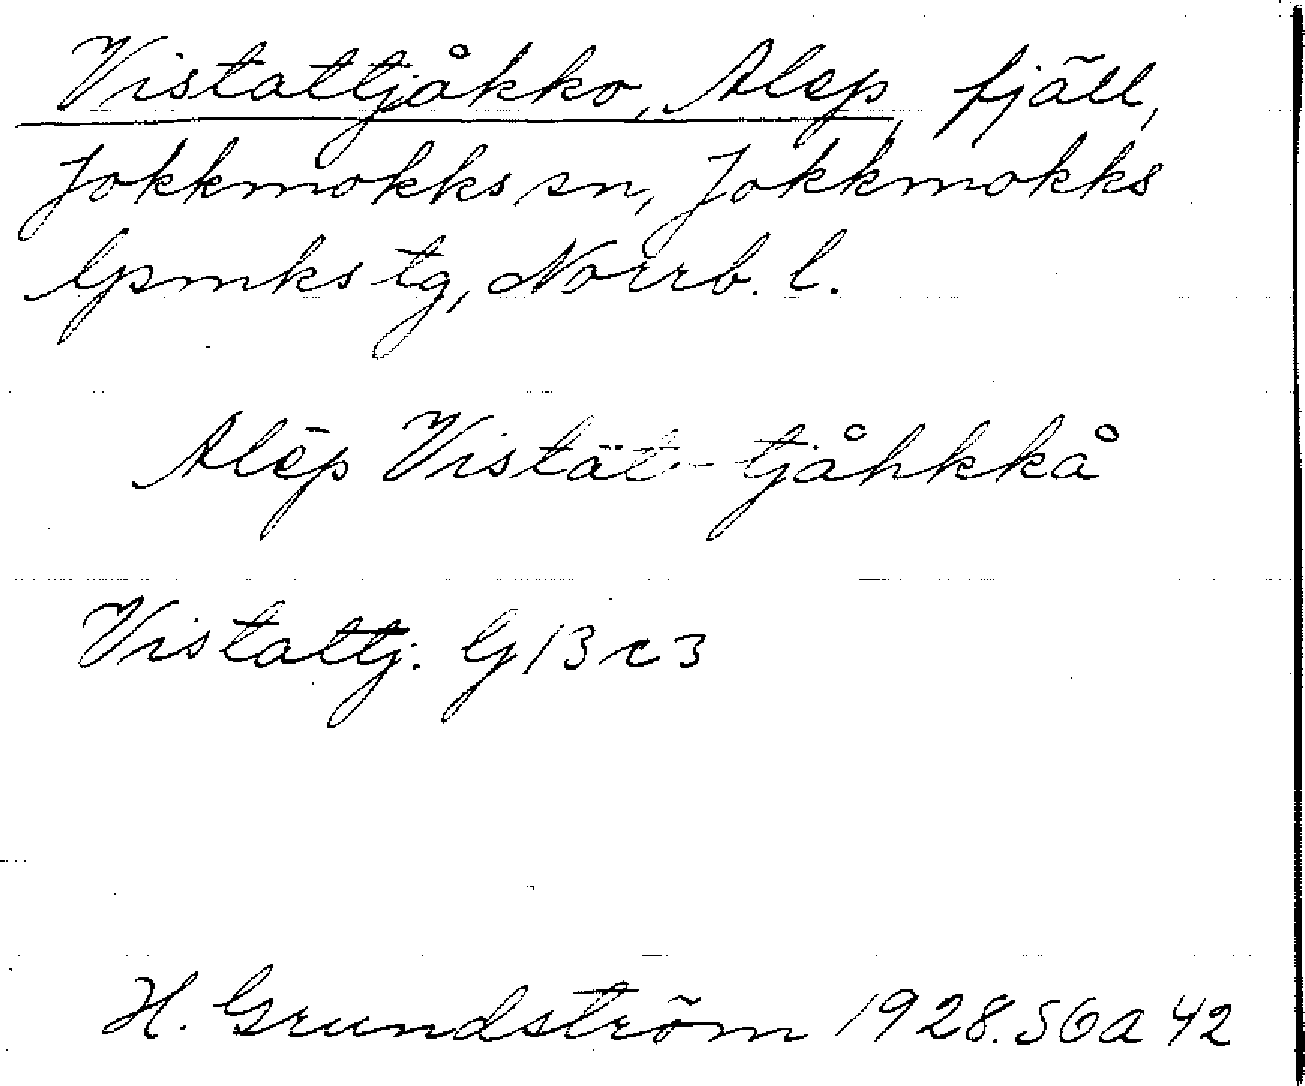 Vistattjåkko, Alep fjäll,
Jokkmokks sn, Jokkmokks
lpmks tg, Norrb. l.
Alēp Vistāt-tjåhkkå
Vistattj. G 13 r 3
H. Grundström 1928. 56a 42